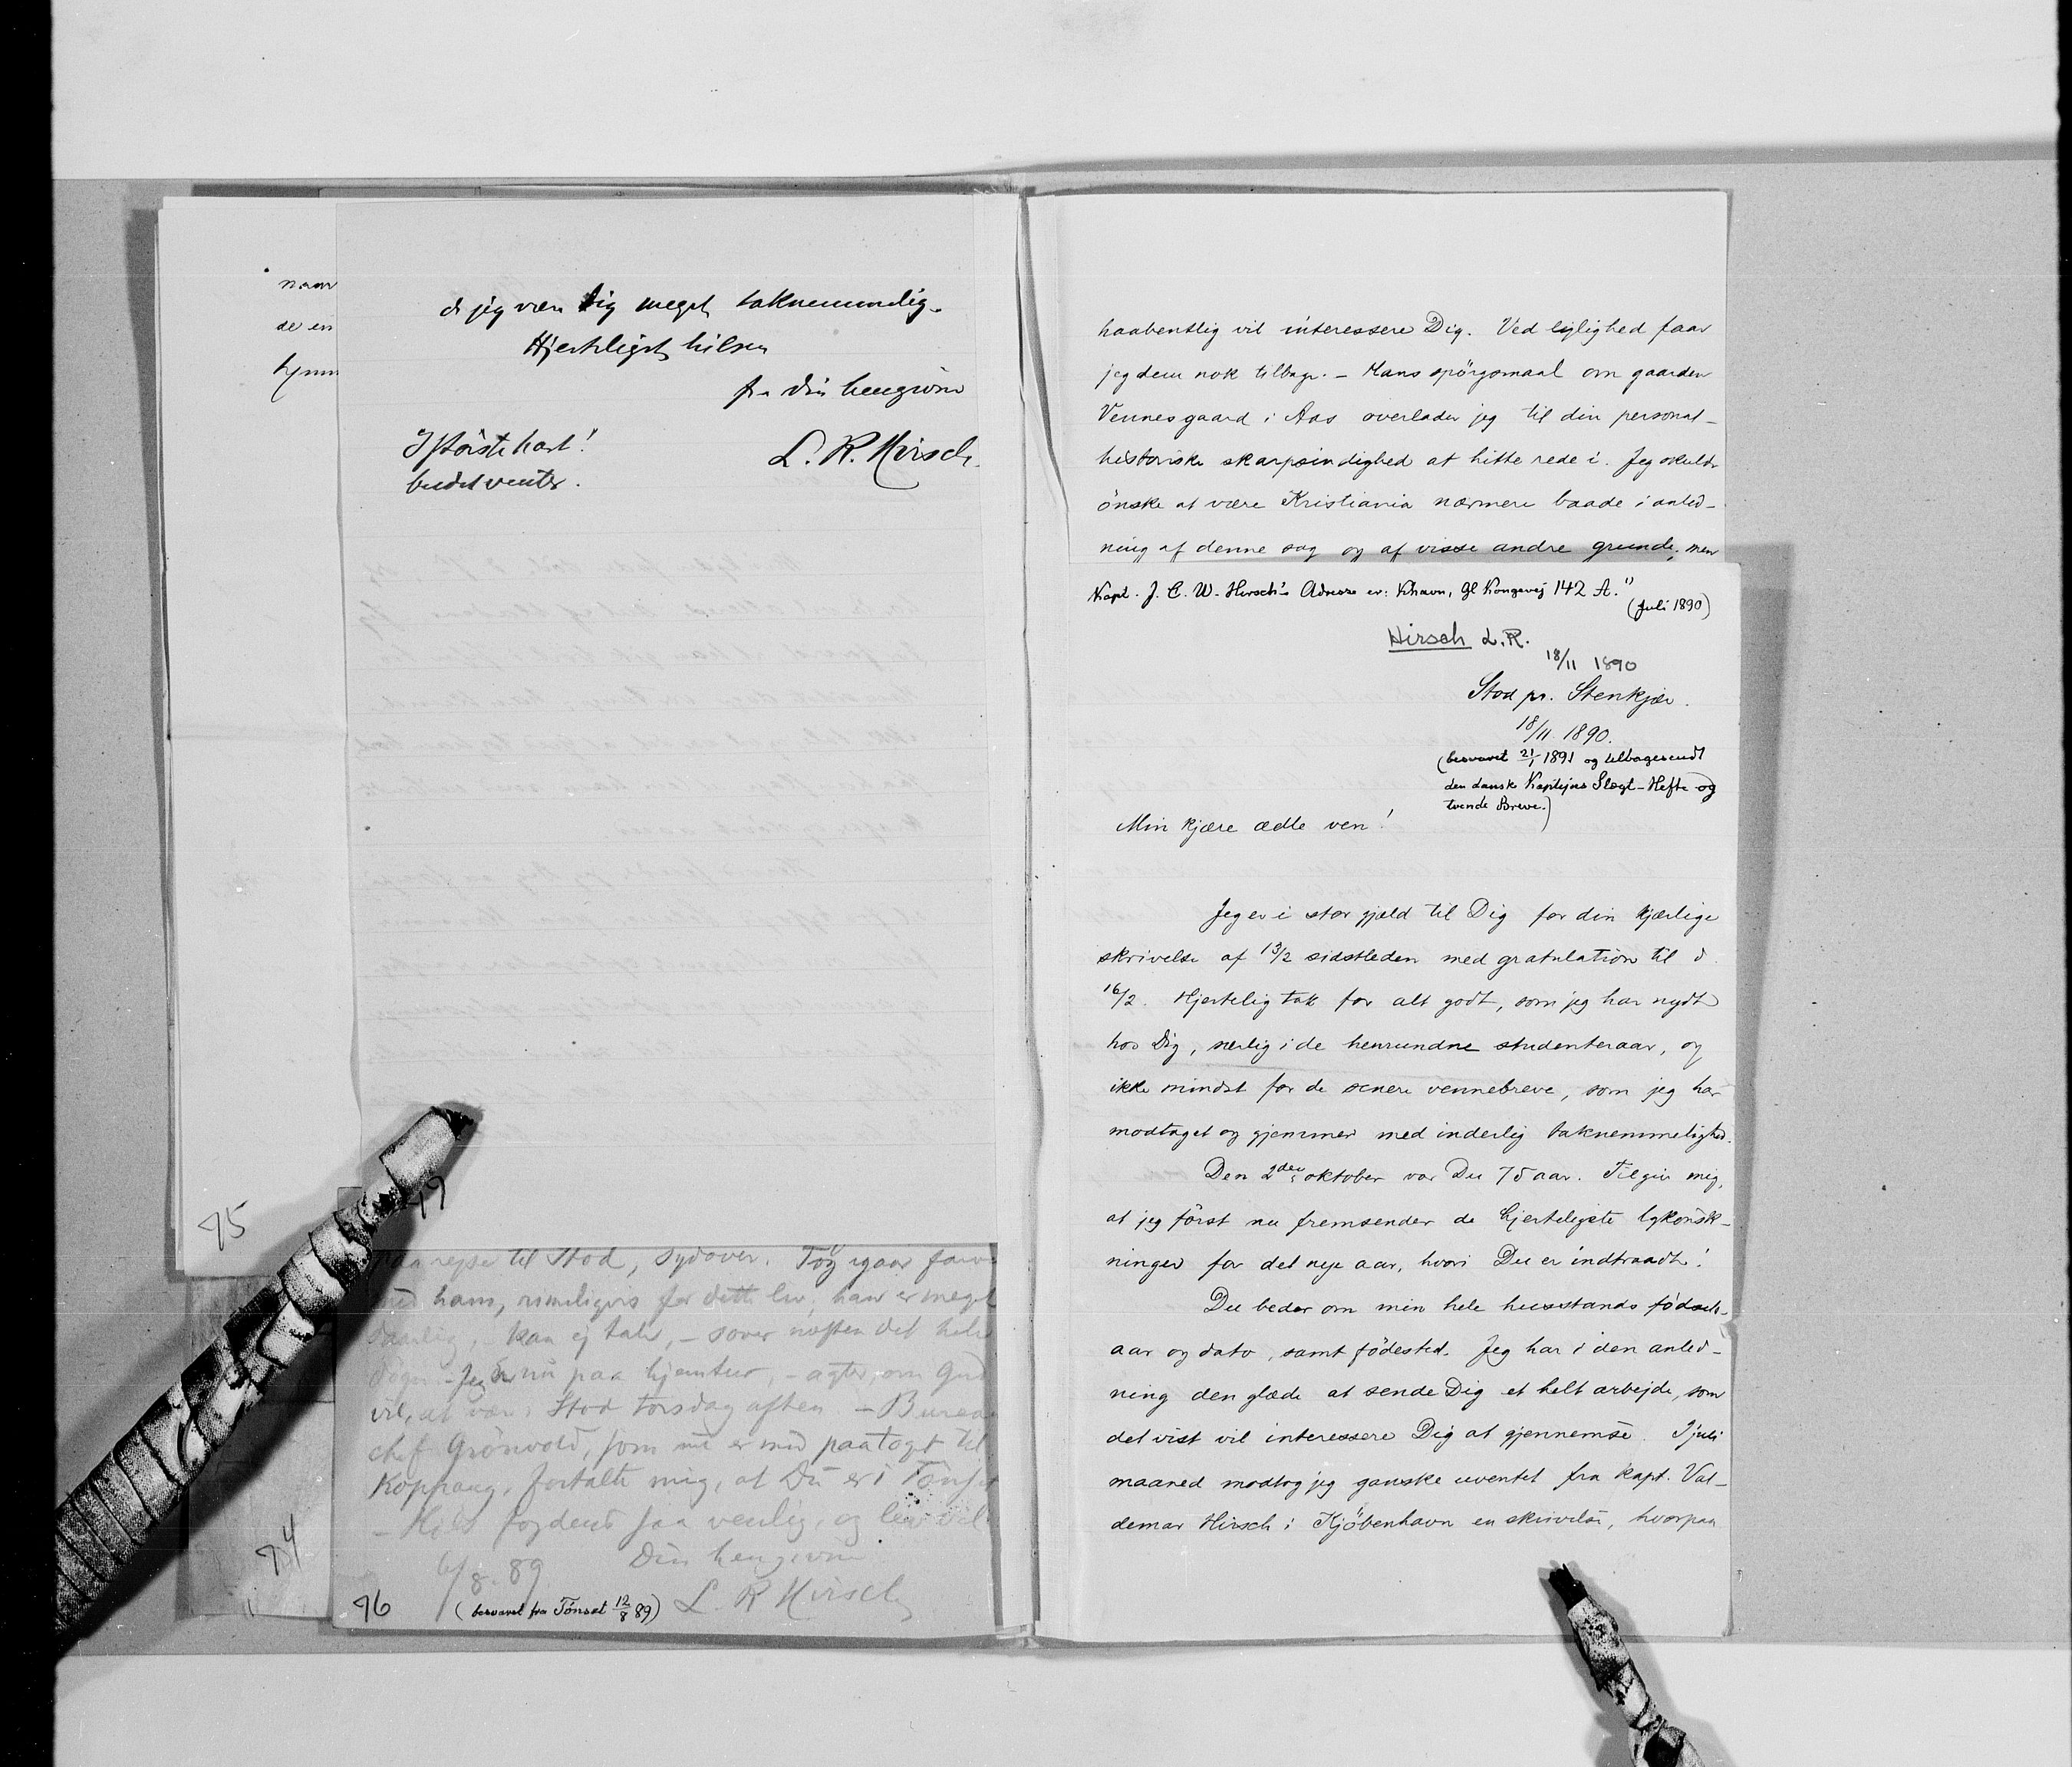 naar
de en
hjem
di jeg være Dig meget taknemmelig.
Hjerteligst hilsen
fra din hengivne
I störste hast!
L. R. Hirsch.
budet venter.
75
paa rejse til Stod, sydover. Tog igaar farvel
med ham, rimeligvis for dette liv; han er meget
daarlig, kan ej tale, – sover næsten det hele
döger. – Jeg er nu paa hjemtur, – agter, om Gud
vil, at være i Stod torsdag aften – Bureau
chef Grönvold, som nu er med paa toget til
Koppang, fortalte mig, at Du er i Tönset
– Hils fogdens saa venlig, og lev vel
6/8. 89 Din hengivne
L. R Hirsch
(besvaret fra Tönset 12/8 89)
76
74
haabentlig vil interessere Dig. Ved lejlighed faar
jeg dem nok tilbage. – Hans spörgsmaal om gaarden
Vennesgaard i Aas overlader jeg til din personal-
historiske skarpsindighed at hitte rede i. Jeg skulde
önske at være Kristiania nærmere baade i anled-
ning af denne sag og af visse andre grunde, men
Kapt. J. C. W. Hirsch's Adresse er: Khavn, Gl Kongevej 142 A."
(Juli 1890)
Hirsch L. R.
18/11 1890
Stod pr. Stenkjær.
18/11 1890.
(besvaret 21/1 1891 og tilbagesendt
den danske Kaptejns Slægt-Hefte og
tvende Breve.)
Min kjære ædle ven!
Jeg er i stor gjæld til Dig for din kjærlige
skrivelse af 13/2 sidstleden med gratulation til d.
16/2. Hjertelig tak for alt godt, som jeg har nydt
hos Dig, særlig i de henrundne studenteraar, og
ikke mindst for de senere vennebreve, som jeg har
modtaget og gjemmer med inderlig taknemmelighed.
Den 2den oktober var Du 75 aar. Tilgiv mig,
at jeg först nu fremsender de hjerteligste lykönsk-
ninger for det nye aar, hvori Du er indtraadt!
Du beder om min hele husstands födsels-
aar og dato, samt födested. Jeg har i den anled-
ning den glæde at sende Dig et helt arbejde, som
det vist vil interessere Dig at gjennemse. I juli
maaned modtog jeg ganske uventet fra kapt. Val-
demar Hirsch i Kjöbenhavn en skrivelse, hvorpaa